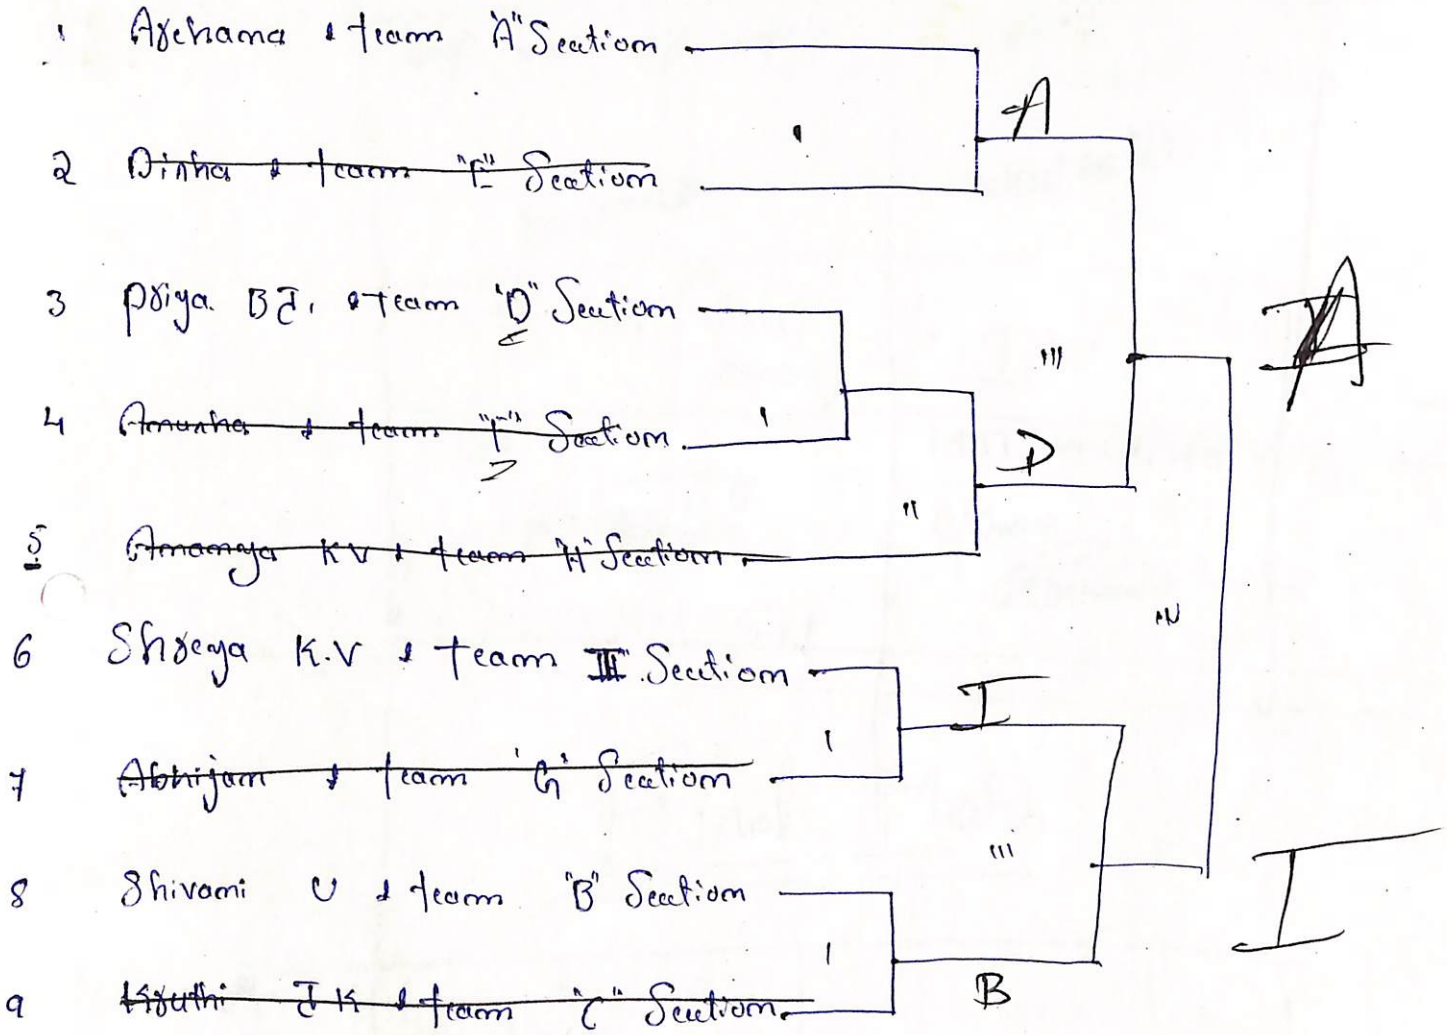 1 Archana & team "A" Section
A
2 Disha & team "E" Section
3 Priya. B J. & team "D" Section
A
III
4 Anusha & team "F" Section.
I
D
II
5 Ananya K V & team "H" Section.
IV
6 Shreya K.V & team I Section
I
7 Abhijam & team "G" Section
I
III
I
8 Shivani U & team "B" Section
I
B
9 Kruthi J K & team "C" Section.